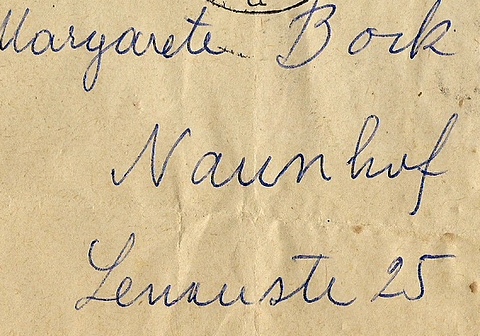 Margarete Bock
Naunhof
Lenaustr 25